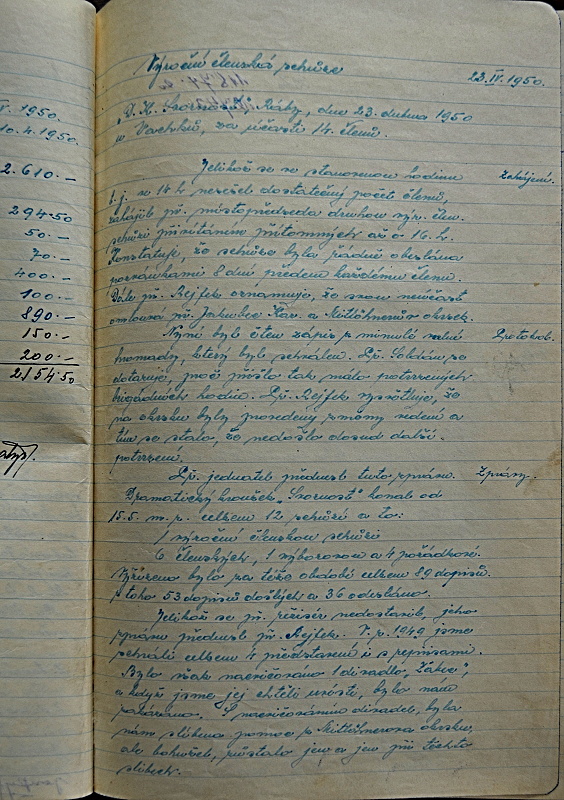 V. 1950.
10.4.1950.
2.610.-
294.50
50.-
70.-
400.-
100.-
890.-
150.-
200.-
2154.50
Výroční členská schůze
23.IV.1950.
„D. K. Svornost" Ráby, dne 23. dubna 1950
u Vachků, za účasti 14 členů.
Jelikož se ve stanovenou hodinu
Zahájení.
t.j. ve 14 h nesešel dostatečný počet členů,
zahájil př. místopředseda druhou výr. člen.
schůzi přivítáním přítomných až o 16. h.
Konstatuje, že schůze byla řádně obeslána
pozvánkami 8 dní předem každému členu.
Dále př. Rejfek oznamuje, že svou neúčast
omlouvá př. Jakubec Kar. a Mittöhnerův okrsek.
Nyní byl čten zápis z minulé valné
Protokol.
hromady, který byl schválen. Př. Soldán se
dotazuje, proč přišlo tak málo potvrzených
brigádních hodin. Př. Rejfek vysvětluje, že
na okrsku byly provedeny změny vedení a
tím se stalo, že nedošlo dosud další
potvrzení.
Př. jednatel přednesl tuto zprávu.
Zprávy.
Dramatický kroužek „Svornost" konal od
15.5. m.r. celkem 12 schůzí a to:
1 výroční členskou schůzi
6 členských, 1 výborovou a 4 pořádkové.
Vyřízeno bylo za totéž období celkem 89 dopisů.
z toho 53 dopisů došlých a 36 odesláno.
Jelikož se př. režisér nedostavil, jeho
zprávu přednesl př. Rejfek. V r. 1949 jsme
sehráli celkem 4 představení i s reprisami.
Bylo však nacvičováno 1 divadlo,
a když jsme jej chtěli uvésti, bylo nám
zakázáno. S nacvičováním divadel, byla
nám slíbena pomoc z Mittöhnerova okrsku,
ale bohužel, zůstalo jen a jen při těchto
slibech.